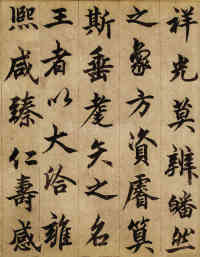 祥光莫辨皤然
之象方資睿算
斯垂耄矣之名
王者以大洽雍
熙咸臻仁壽感